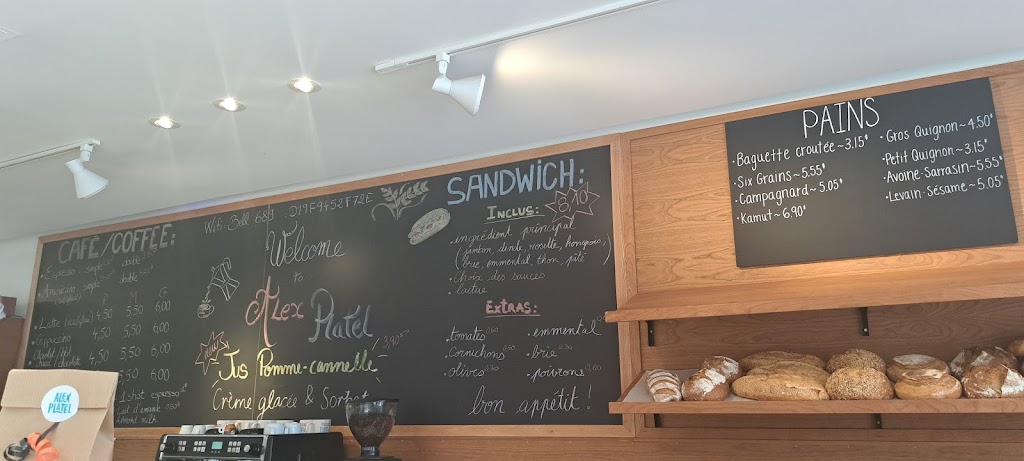 CAFÉ/COFFEE:
Espresso simple
double
Americano
simple
double
P M G
Latte 4,50 5,50 6,00
Cappuccino 4,50 5,50 6,00
Chocolat 4,50 5,50 6,00
5,50 6,00
1 shot espresso
Lait d'amande
almond milk
Wifi-Bell 689 D19F9452F72E
Welcome
to
Alex Platel
Jus Pomme-cannelle
3,90
Crème glacée & Sorbet
SANDWICH:
INCLUS:
8,10
• ingrédient principal
(jambon, dinde, rosette, hongrois,
brie, emmental, thon, pâté)
• choix des sauces
• laitue
EXTRAS:
• tomates
• cornichons
• olives
• emmental
• brie
• poivrons
bon appétit!
PAINS
• Baguette croutée~3.15$
• Six Grains~5.55$
• Campagnard~5.05$
• Kamut~6.90$
• Gros Quignon~4.50$
• Petit Quignon~3.15$
• Avoine-Sarrasin~5.55$
• Levain-Sésame~5.05$
ALEX
PLATEL